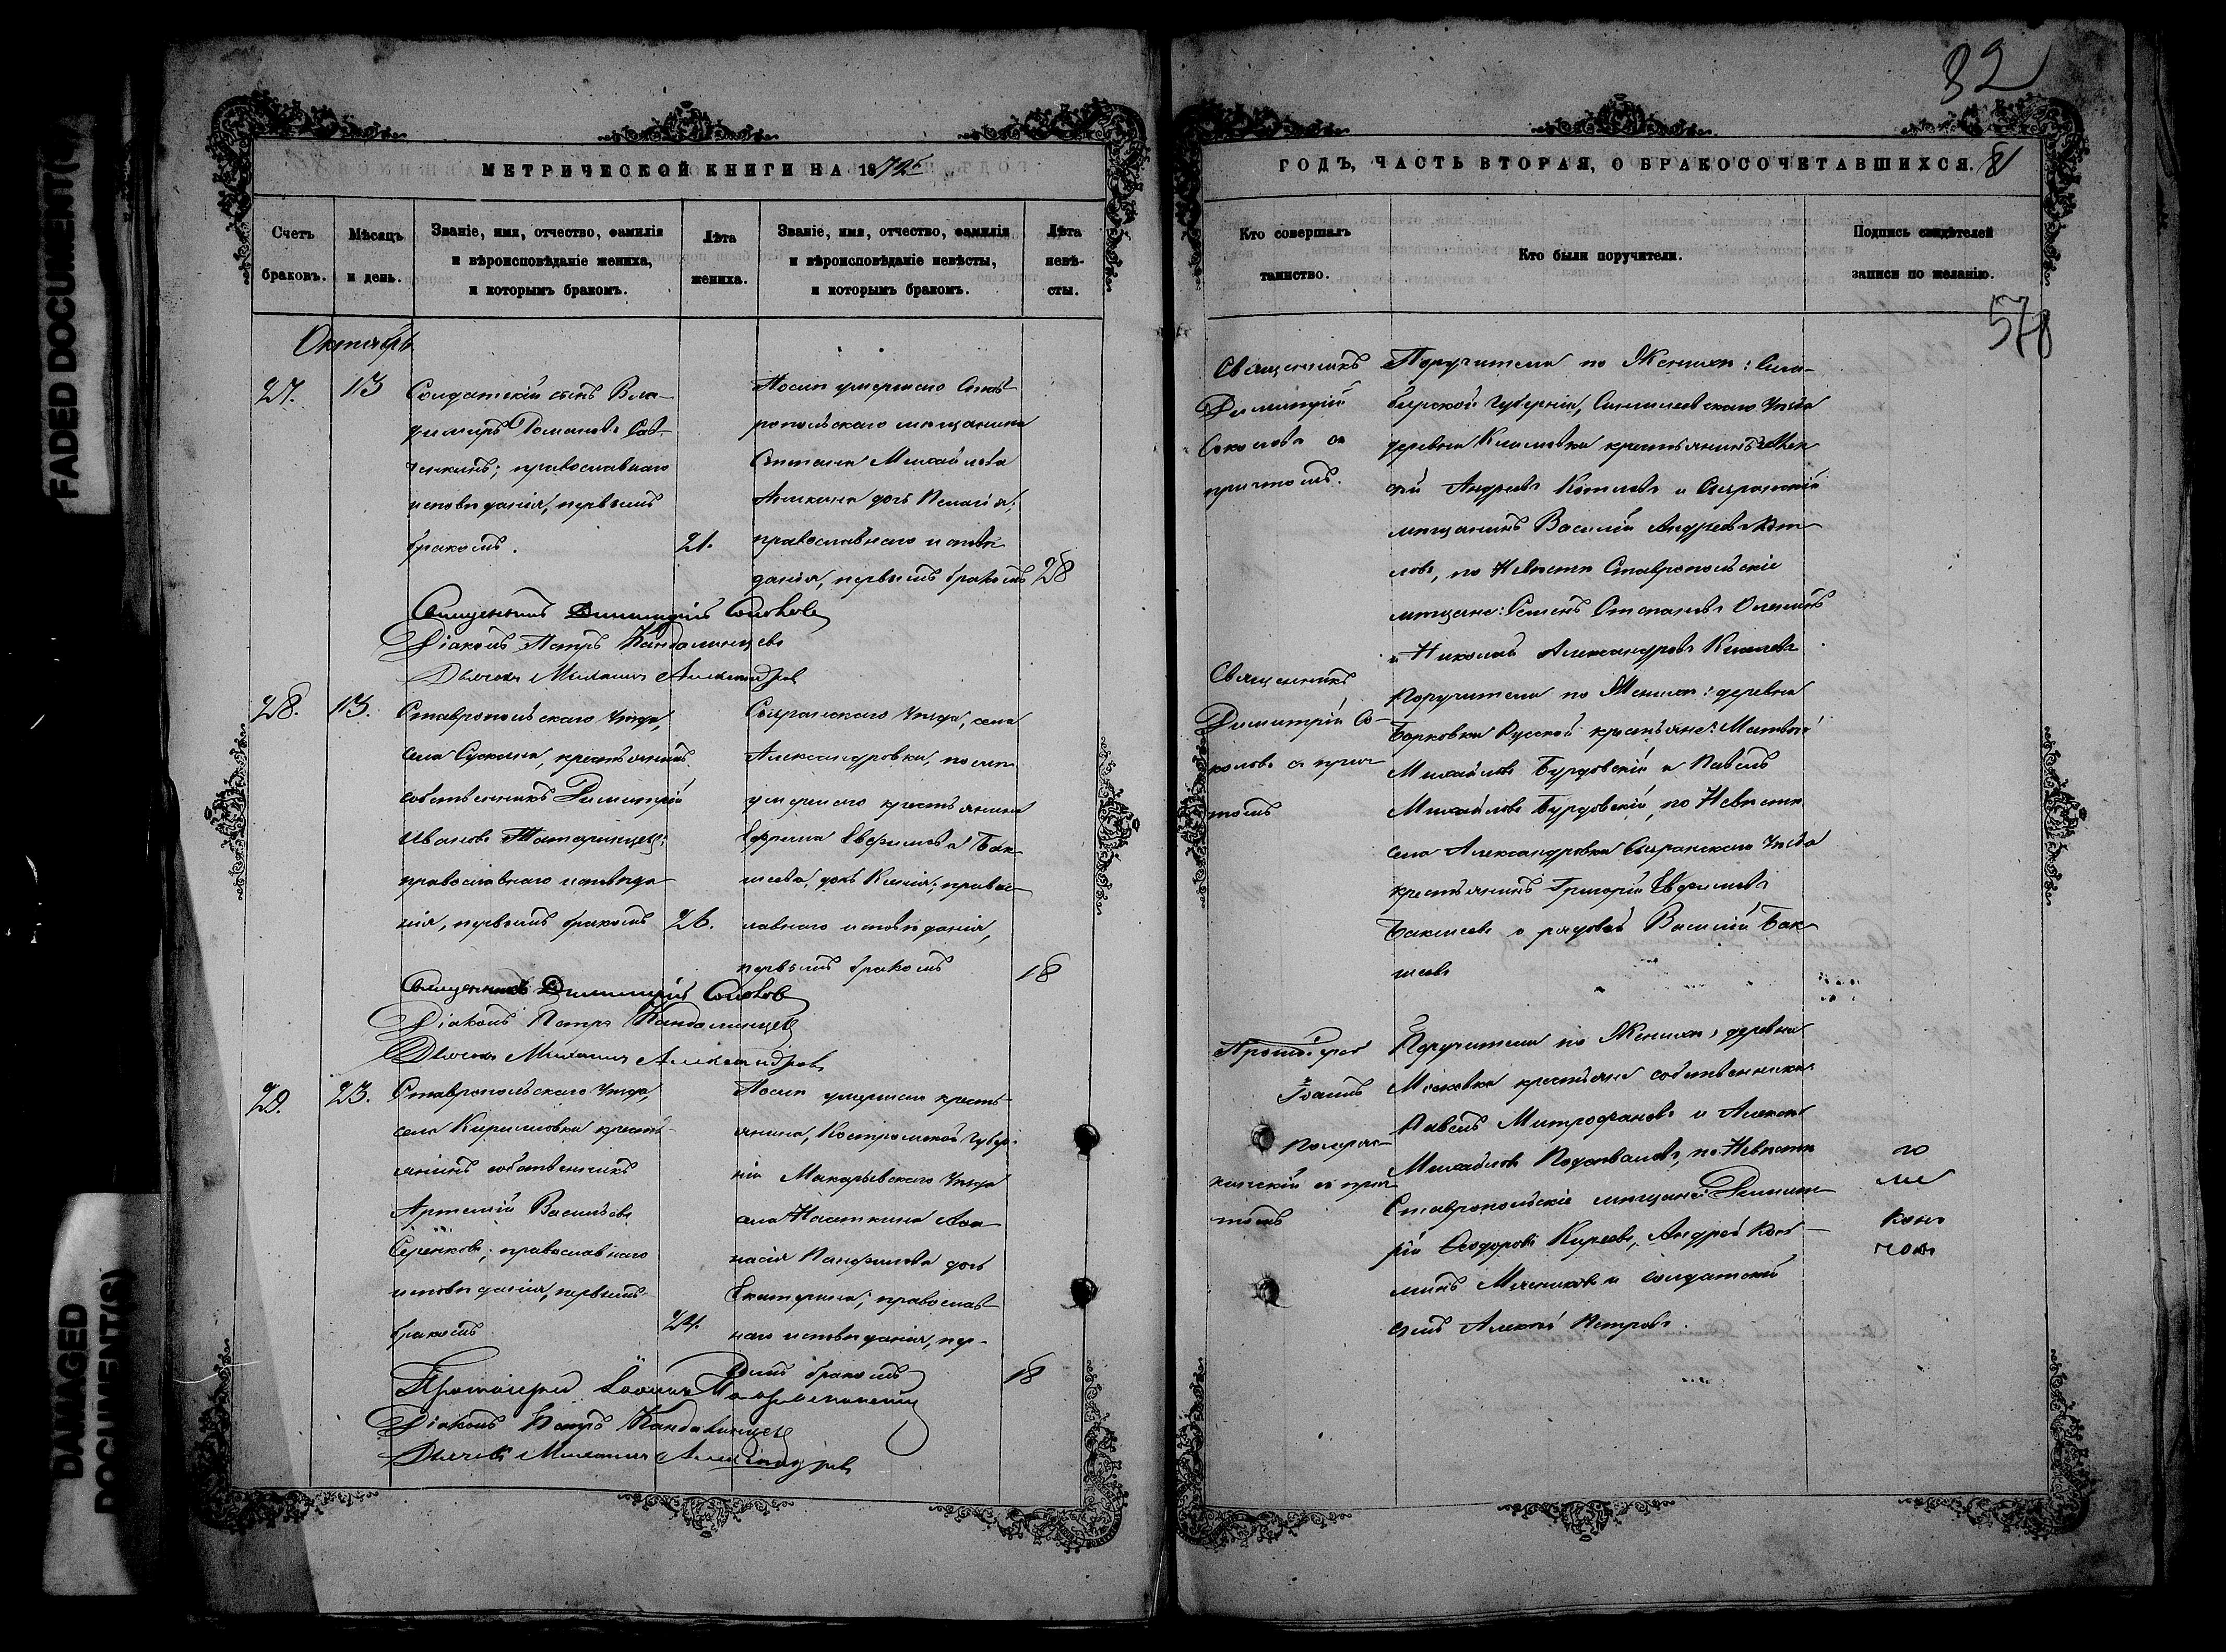 FADED DOCUMENT(S)
DAMAGED
DOCUMENT(S)
МЕТРИЧЕСКОЙ КНИГИ НА 1872
Счетъ
браковъ.
Мѣсяцъ
и день.
Званіе, имя, отчество, фамилія
и вѣроисповѣданіе жениха,
и которымъ бракомъ.
Лѣта
жениха.
Званіе, имя, отчество, фамилія
и вѣроисповѣданіе невѣсты,
и которымъ бракомъ.
Лѣта
невѣ-
сты.
Октябрь
27.
13
Солдатскій сынъ Вла-
димиръ Домановъ
православнаго
исповѣданія, первымъ
бракомъ.
21.
Послѣ умершаго Став-
ропольскаго мещанина
Михайлова
дочь Пелагія;
православнаго исповѣ
данія, первымъ бракомъ
28
Священникъ Димитрій Соколовъ
Діаконъ Петръ Кандалинцевъ
Дьячекъ Михаилъ Александровъ
28.
13.
Ставропольскаго уѣзда,
села Сускана, крестьянинъ
собственникъ Димитрій
Ивановъ Татаринцевъ;
православнаго исповѣда
нія, первымъ бракомъ
26.
Сызранскаго уѣзда, села
Александровки, послѣ
умершаго крестьянина
Ефрема Евфимова Бак
шева, дочь Ксенія; правос
лавнаго исповѣданія,
первымъ бракомъ
18
Священникъ Димитрій Соколовъ
Діаконъ Петръ Кандалинцевъ
Дьячекъ Михаилъ Александровъ
29.
23.
Ставропольскаго уѣзда,
села Кирилловки кресть-
янинъ собственникъ
Артемій Васильевъ
православнаго
исповѣданія, первымъ
бракомъ
24.
Послѣ умершаго кресть-
янина, Костромской губер-
ніи Макарьевскаго уѣзда
села Аѳа-
насія Панфилова дочь
Екатерина; православ
наго исповѣданія, пер-
вымъ бракомъ
18
Протоіерей Іоаннъ
Діаконъ Петръ Кандалинцевъ
Дьячекъ Михаилъ Александровъ
32
ГОДЪ, ЧАСТЬ ВТОРАЯ, О БРАКОСОЧЕТАВШИХСЯ.
Кто совершалъ
таинство.
Кто были поручители.
Подпись свидѣтелей
записи по желанію.
578
Священникъ
Димитрій
Соколовъ съ
причтомъ.
Поручители по Женихѣ: Сим-
бирской губерніи, Сенгилеевскаго уѣзда
деревни крестьянинъ Алек
сѣй Андреевъ Котловъ и Сызранскій
мещанинъ Василій Андреевъ Кот
ловъ, по Невѣстѣ Ставропольскіе
мещане: Семенъ Степановъ
и Николай Александровъ
Священникъ
Димитрій Со-
коловъ съ прич
томъ
Поручители по Женихѣ: деревни
Борковки Русской крестьяне: Матвѣй
Михайловъ Бурдовскій и Павелъ
Михайловъ Бурдовскій, по Невѣстѣ
села Александровки Сызранскаго уѣзда
крестьянинъ Григорій Евфимовъ
Бакшевъ и рядовой Василій Бак
шевъ
Протоіерей
Іоаннъ
съ прич
томъ
Поручители по Женихѣ: деревни
Московки крестьяне собственники
Павелъ Митрофановъ и Алексѣй
Михайловъ Подоваловъ, по Невѣстѣ
Ставропольскіе мещане: Димит
рій Ѳеодоровъ Киреевъ, Андрей Коз-
минъ Мясниковъ и солдатскій
сынъ Алексѣй Петровъ.